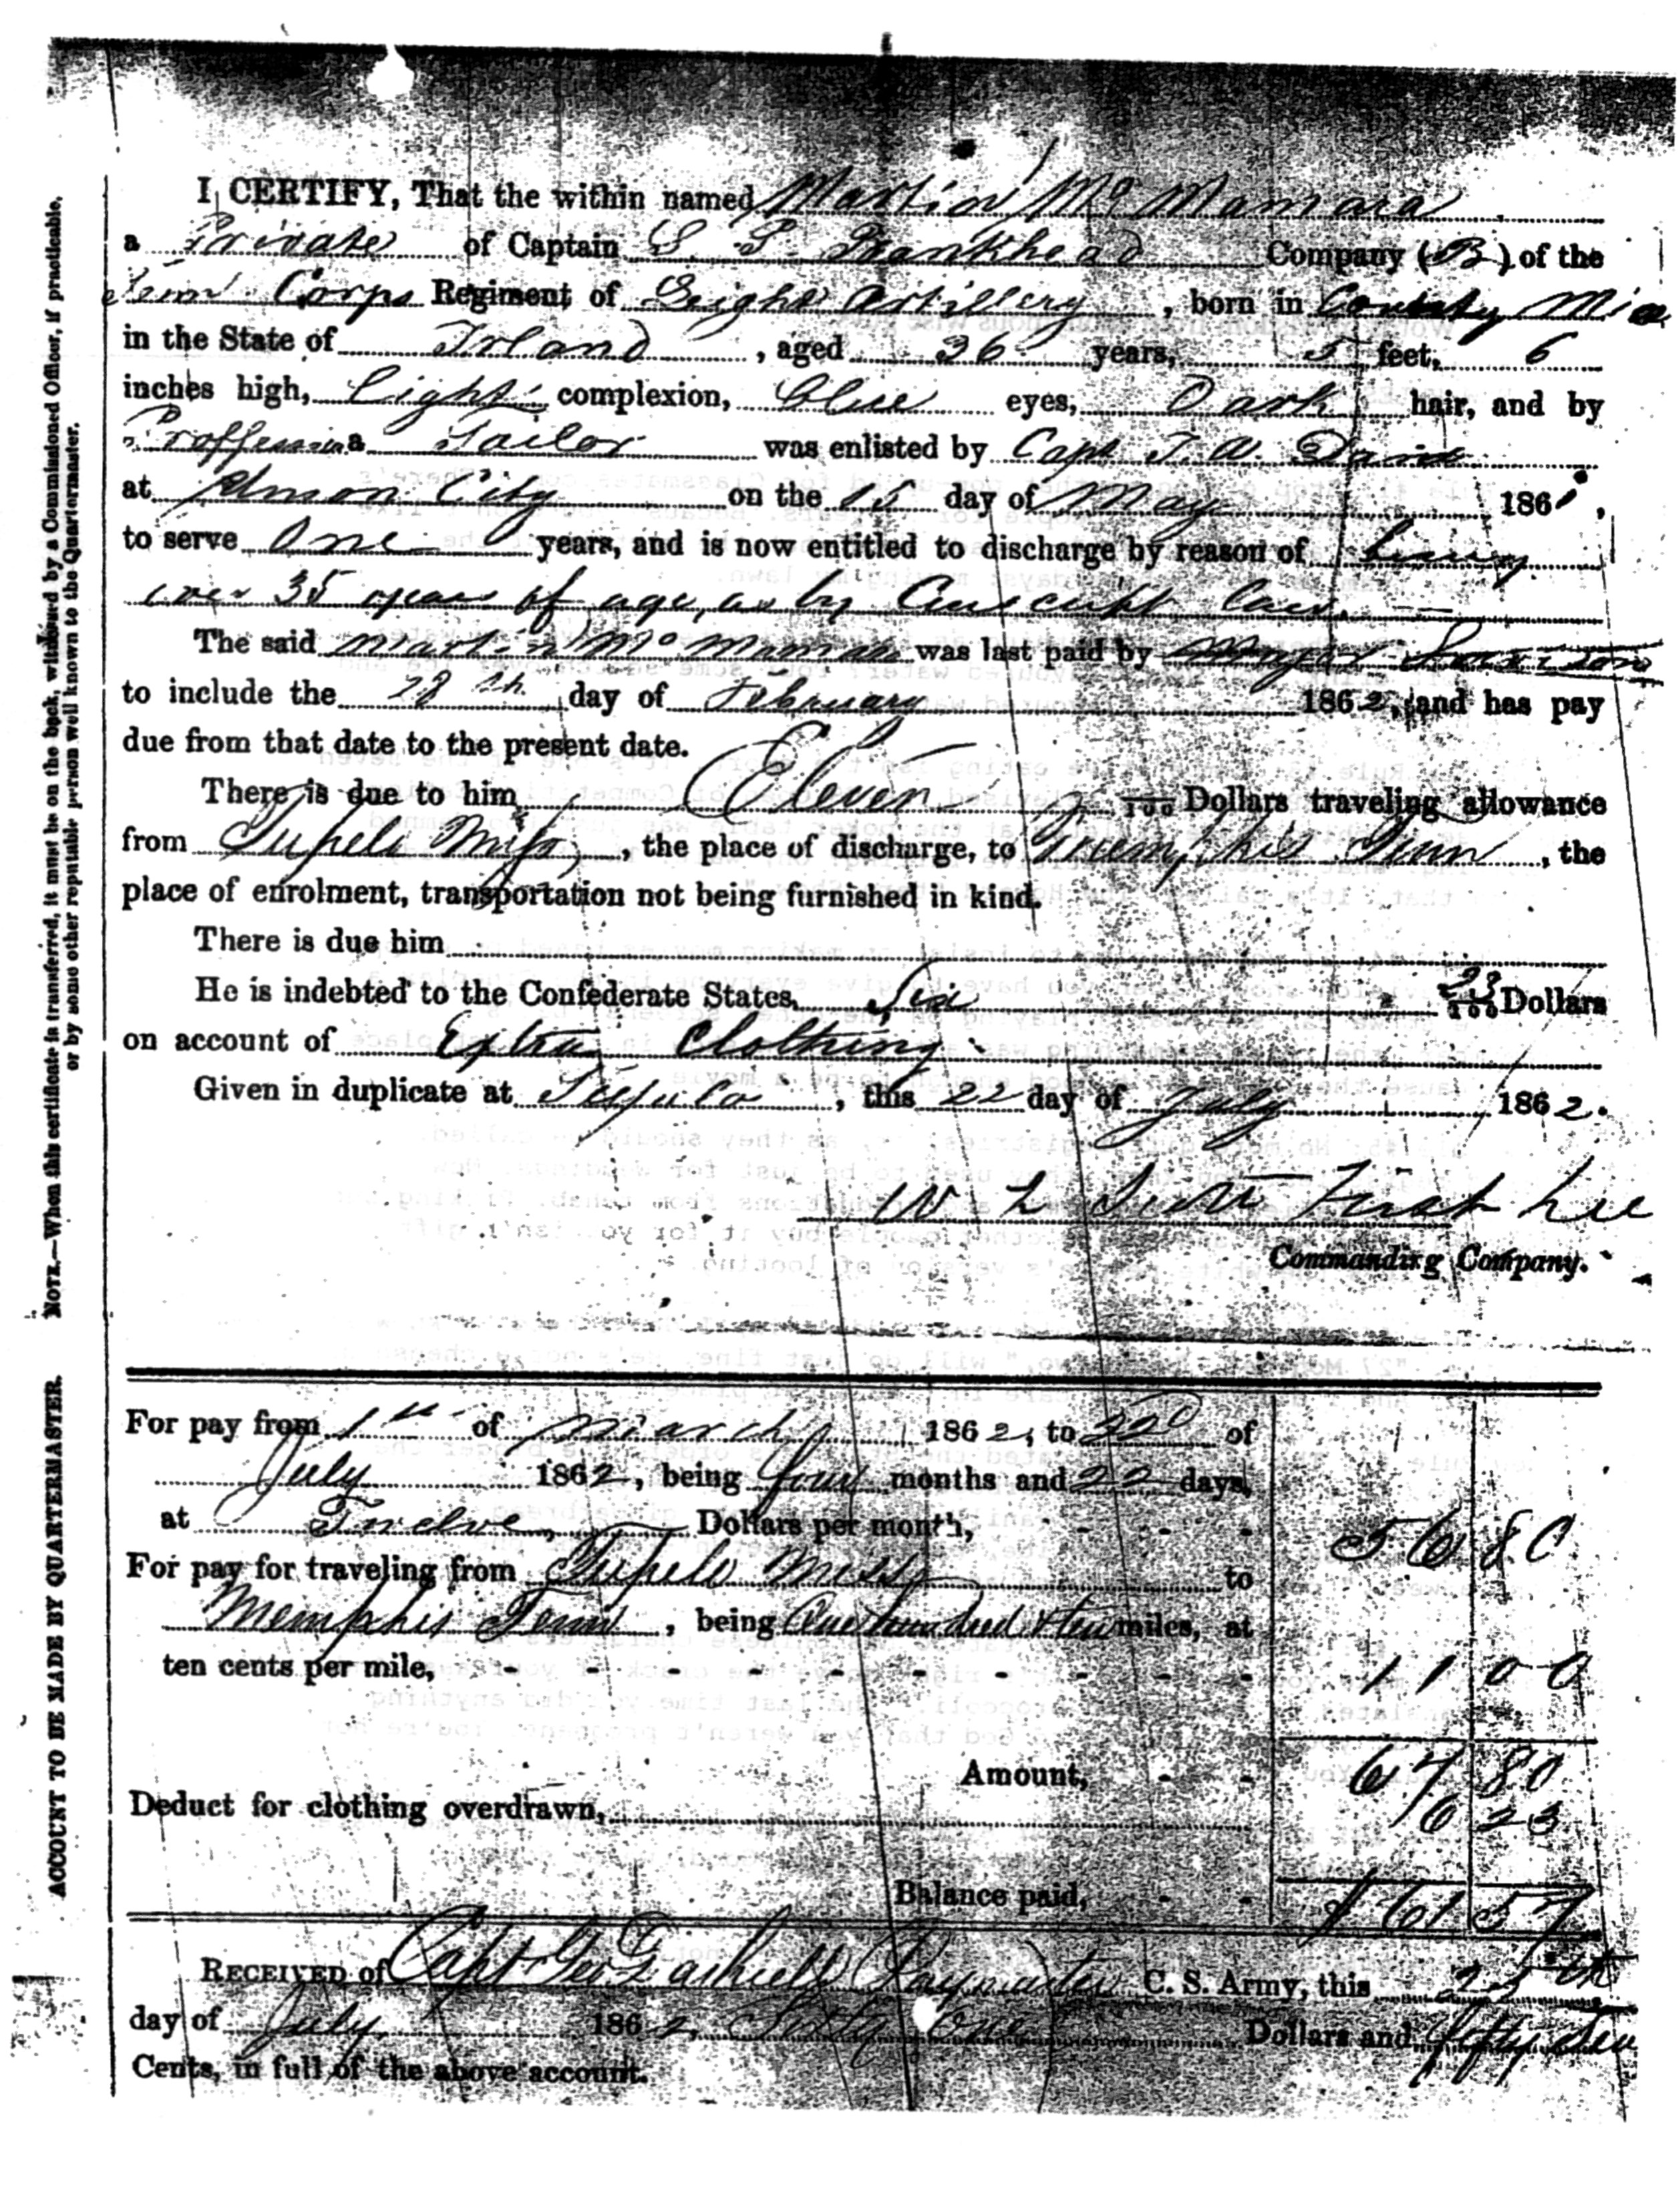 I CERTIFY, That the within named Martin McMamara
a Private of Captain S. P. Bankhead Company (B) of the
Tenn Corps Regiment of Leight Artillery, born in County
in the State of Irland, aged 36 years, 5 feet, 6
inches high, light complexion, blue eyes, Dark hair, and by
Proffession a Tailor was enlisted by Capt J. W.
at Union City on the 15 day of May 1861,
to serve One years, and is now entitled to discharge by reason of being
over 35 years of age, as by Conscript Law.
The said Martin McMamara was last paid by Major
to include the 28th day of February 1862, and has pay
due from that date to the present date.
There is due to him Eleven 100 Dollars traveling allowance
from Tupelo Miss, the place of discharge, to Memphis Tenn, the
place of enrolment, transportation not being furnished in kind.
There is due him
He is indebted to the Confederate States, Six 23/100 Dollars
on account of Extra Clothing
Given in duplicate at Tupulo, this 22 day of July 1862.
W L First Lieu
Commanding Company.
For pay from 1st of March 1862, to 22d of
July 1862, being four months and 22 days,
at Twelve Dollars per month, - - - 56 80
For pay for traveling from Tupelo Missp to
Memphis Tenn, being One hundred & ten miles, at
ten cents per mile, - - - - - - - - - - 11 00
Amount, - - 67 80
Deduct for clothing overdrawn, 6 23
Balance paid, - - $61 57
RECEIVED of Capt Geo Paymaster C. S. Army, this 25th
day of July 1862, Sixty One Dollars and fifty
Cents, in full of the above account.
NOTE.—When this certificate is transferred, it must be on the back, witnessed by a Commissioned Officer, if practicable,
or by some other reputable person well known to the Quartermaster.
ACCOUNT TO BE MADE BY QUARTERMASTER.